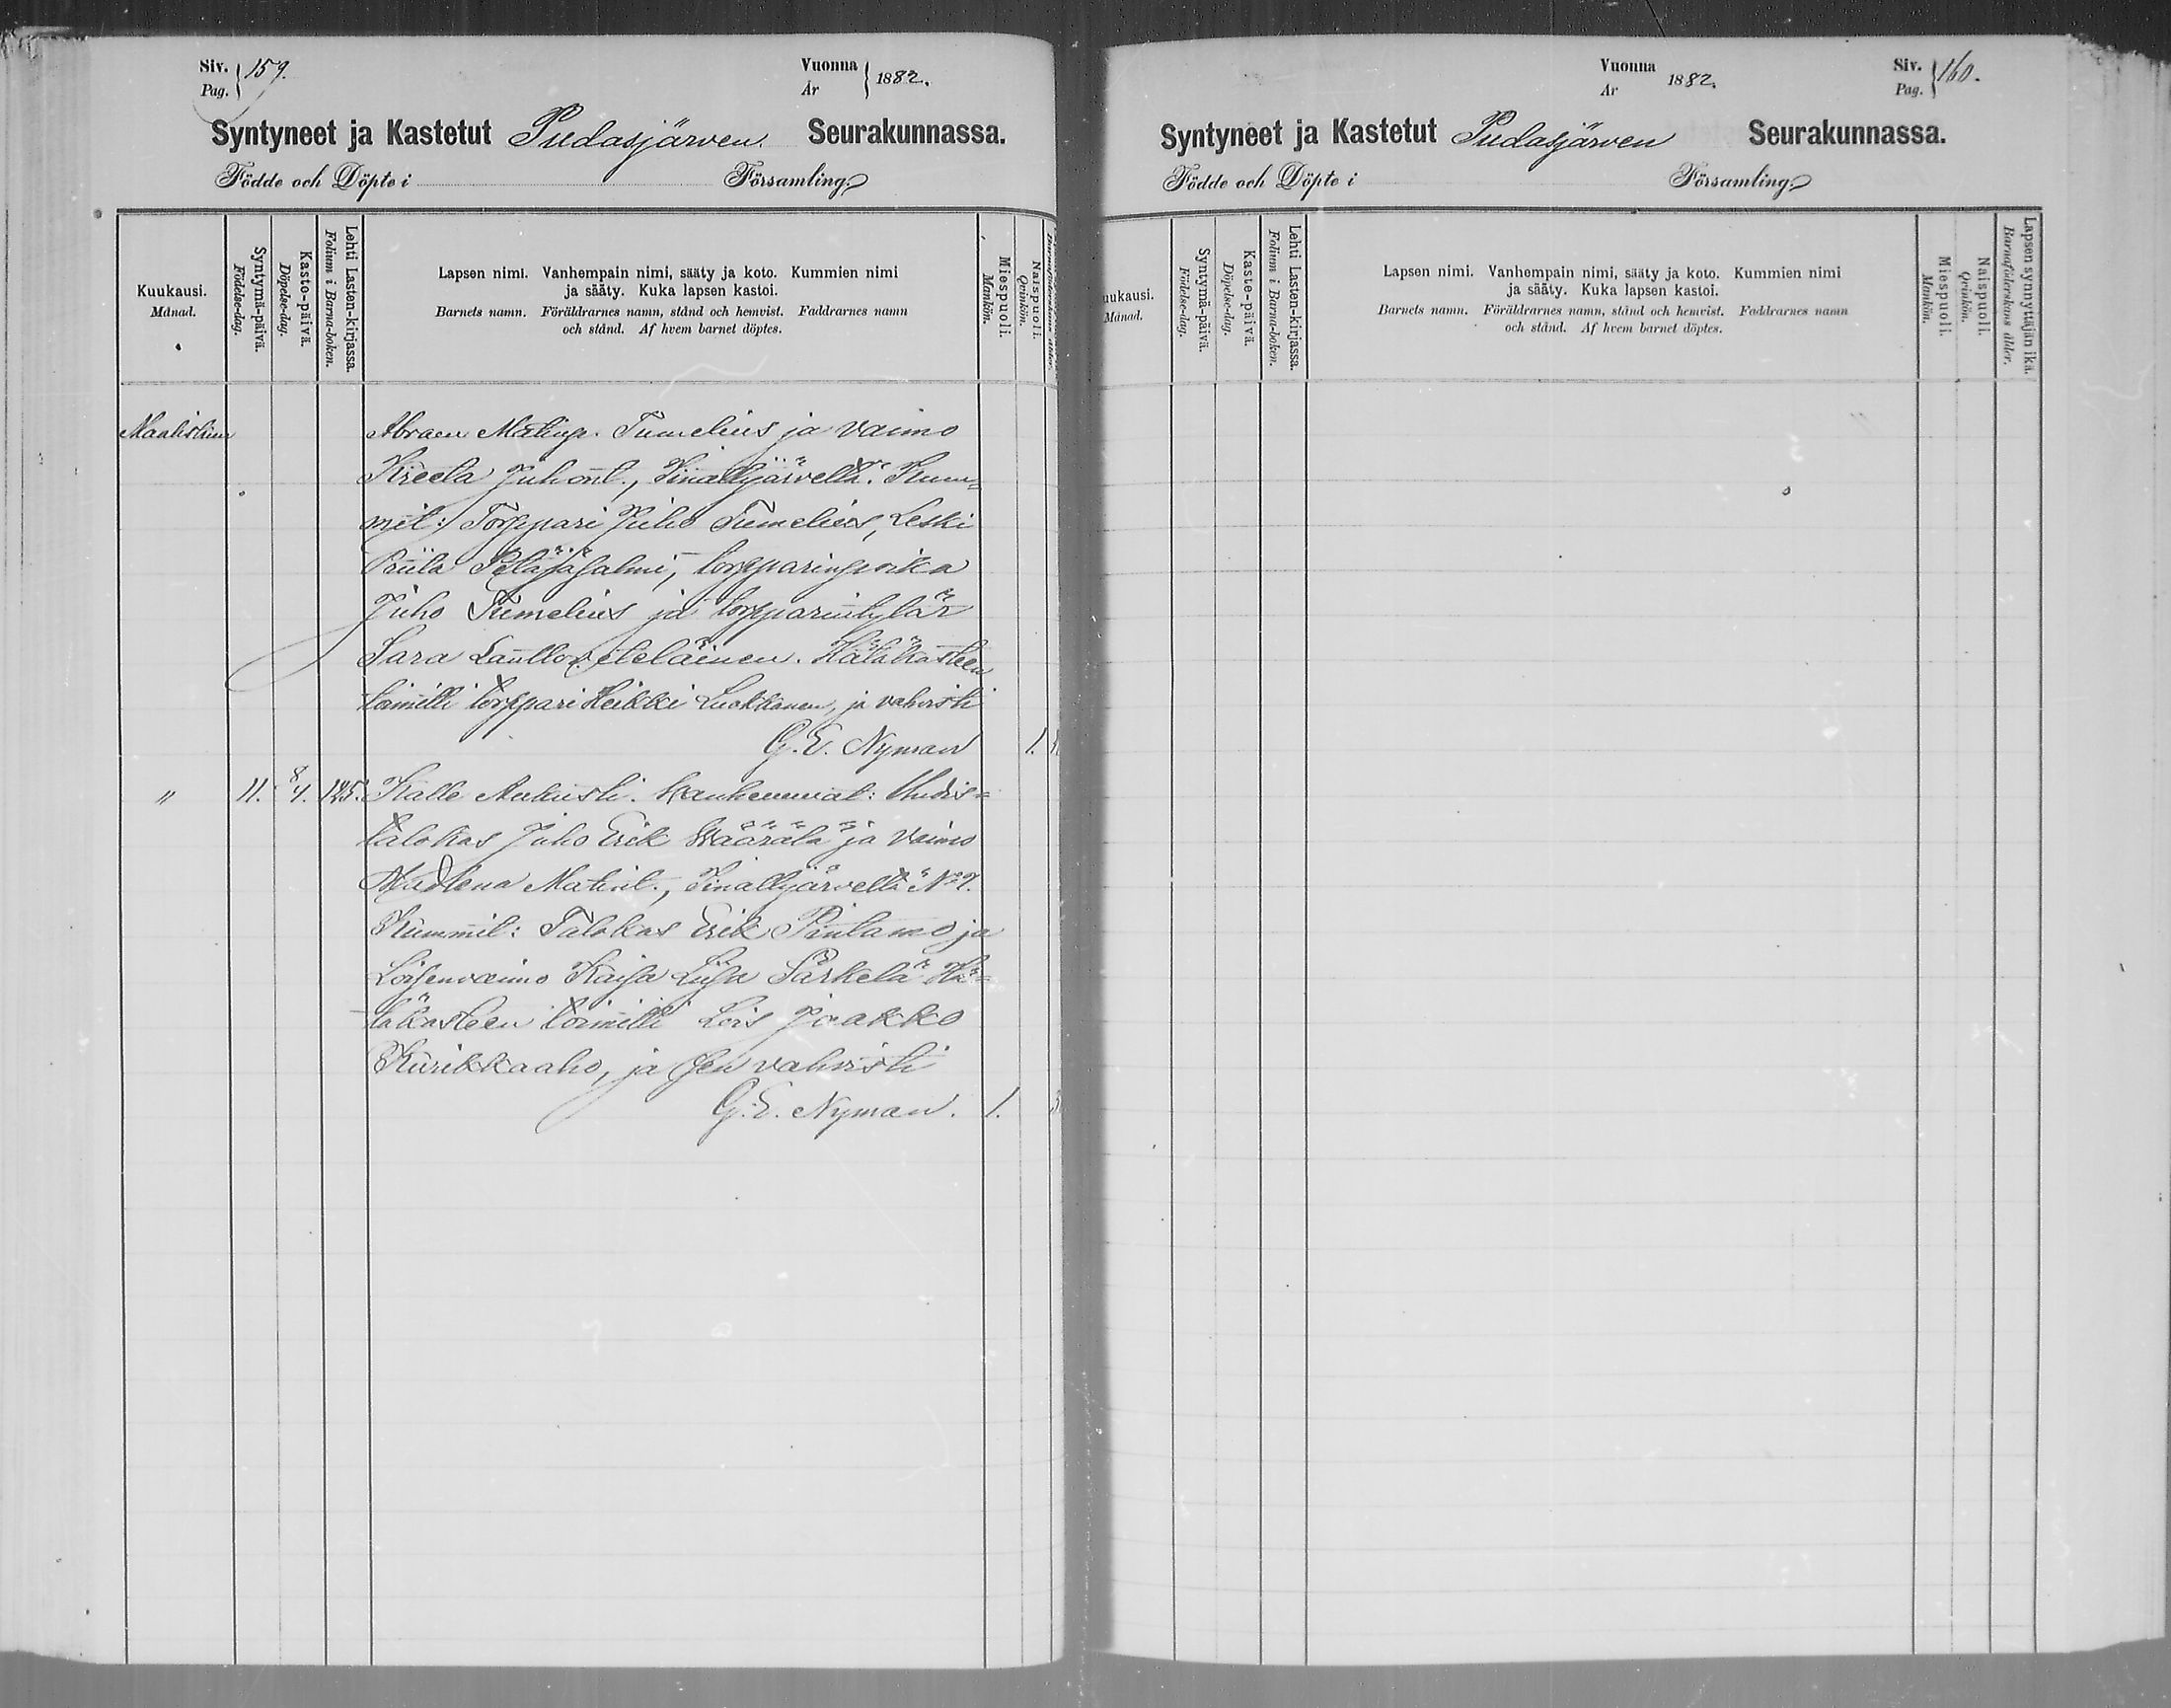 Siv. Pag. 159.
Vuonna År 1882.
Syntyneet ja Kastetut Pudasjärven Seurakunnassa.
Födde och Döpte i Församling.
Kuukausi. Månad.
Syntymä-päivä. Födelse-dag.
Kasto-päivä. Döpelse-dag.
Lehti Lasten-kirjassa. Folium i Barna-boken.
Lapsen nimi. Vanhempain nimi, sääty ja koto. Kummien nimi
ja sääty. Kuka lapsen kastoi.
Barnets namn. Föräldrarnes namn, stånd och hemvist. Faddrarnes namn
och stånd. Af hvem barnet döptes.
Miespuoli. Mankön.
Naispuoli. Qvinkön.
Maalisk.
Abram Matinp. Tumelius ja vaimo
Kreeta Juhont., Kum=
mit: Torppari Juho Tumelius, Leski
Priita torpparinpoika
Juho Tumelius ja torpparintytär
Sara Hätäkasteen
toimitti torppari Heikki Luokkanen, ja vahvisti
G. E. Nyman 1.
" 11. 8/4. 125. Kalle Aukusti. Vanhemmat: Uudis=
talokas Juho Erik Määrälä ja vaimo
Matint., Sinalljärveltä No 7.
Kummit: Talokas Erik Pintamo ja
Loisenvaimo Kaisa Liisa Särkelä Hä=
täkasteen toimitti Lois Jaakko
Kurikkaaho, ja sen vahvisti
G. E. Nyman. 1.
Vuonna År 1882.
Siv. Pag. 160.
Syntyneet ja Kastetut Pudasjärven Seurakunnassa.
Födde och Döpte i Församling.
uukausi. Månad.
Syntymä-päivä. Födelse-dag.
Kaste-päivä. Döpelse-dag.
Lehti Lasten-kirjassa. Folium i Barna-boken.
Lapsen nimi. Vanhempain nimi, sääty ja koto. Kummien nimi
ja sääty. Kuka lapsen kastoi.
Barnets namn. Föräldrarnes namn, stånd och hemvist. Faddrarnes namn
och stånd. Af hvem barnet döptes.
Miespuoli. Mankön.
Naispuoli. Qvinkön.
Lapsen synnyttäjän ikä. Barnaföderskans ålder.